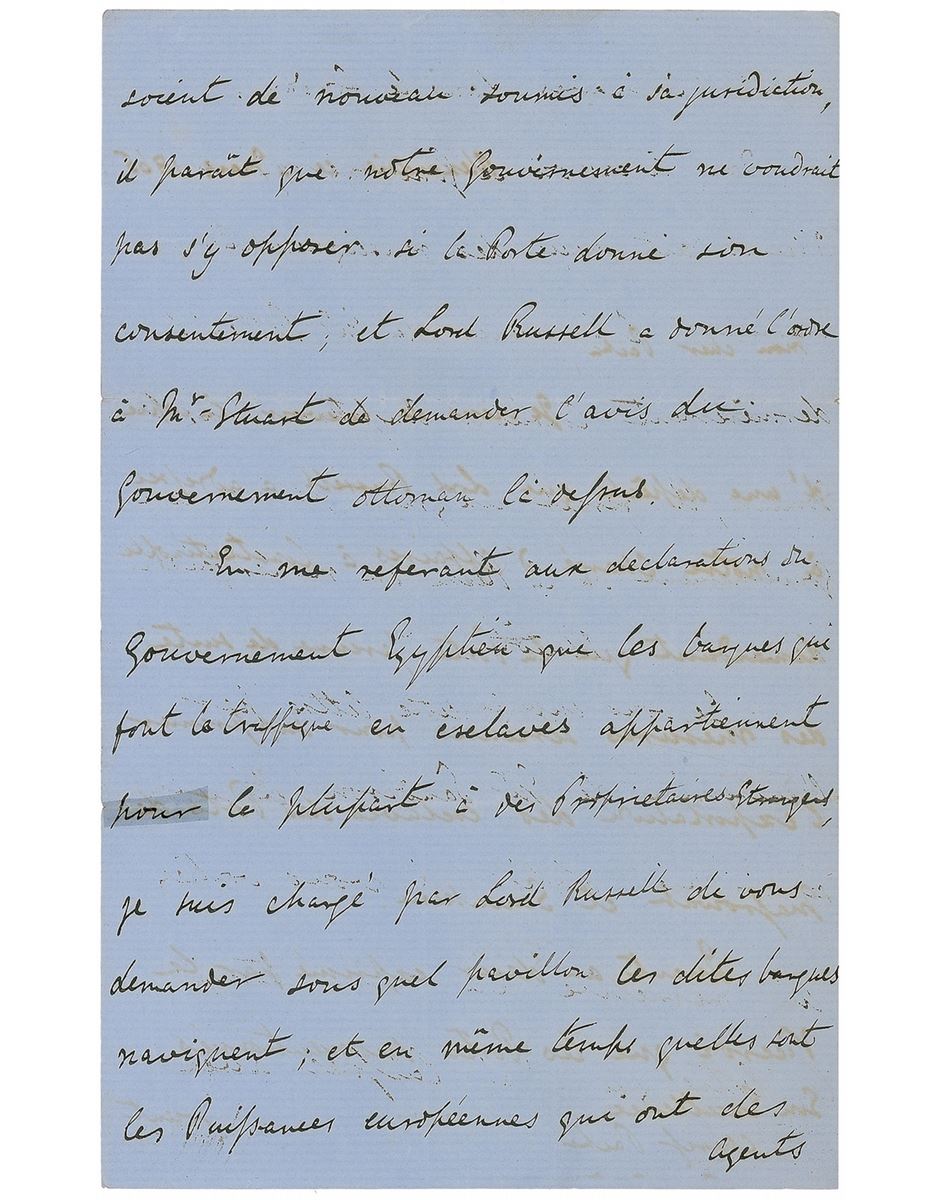 soient de nouveau soumis à sa juridiction,
il paraît que notre Gouvernement ne voudrait
pas s'y opposer si la Porte donne son
consentement, et Lord Russell a donné l'ordre
à Mr. Stuart de demander l'avis du
Gouvernement ottoman là dessus.
En me referant aux declarations du
Gouvernement Egyptien que les barques qui
font le traffique en esclaves appartiennent
pour la plupart à des Proprietaires Etrangers,
je suis chargé par Lord Russell de vous
demander sous quel pavillon les dites barques
naviguent; et en même temps quelles sont
les Puissances européennes qui ont des
agents
mon cher Pacha